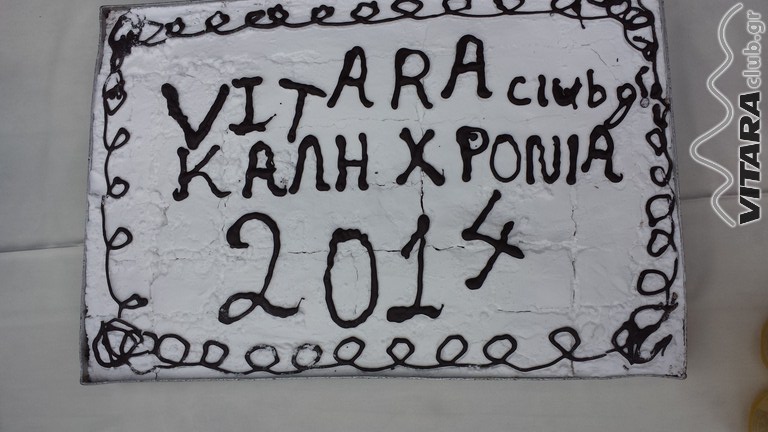 VITARA club gr
ΚΑΛΗ ΧΡΟΝΙΑ
2014
VITARAclub.gr